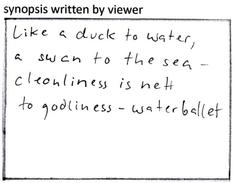 synopsis written by viewer
Like a duck to water,
a swan to the sea -
cleanliness is nett
to godliness - waterballet